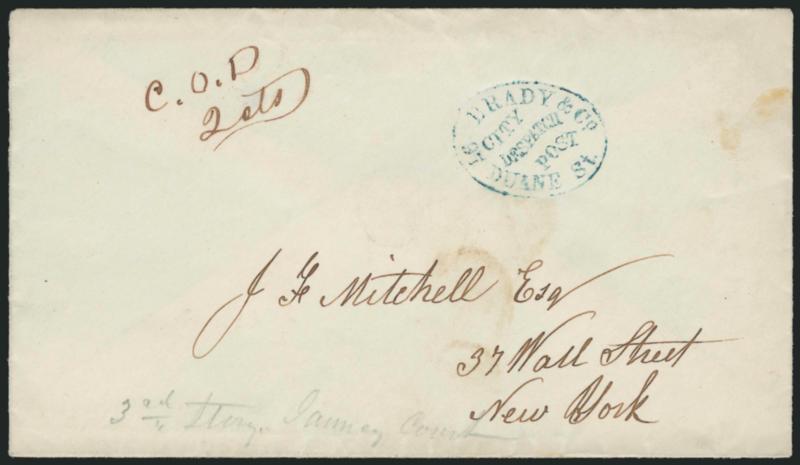 C.O.D
2cts
BRADY & Co
97 DUANE St.
CITY
DESPATCH
POST
J F Mitchell Esq
37 Wall Street
New York
3rd Story Court